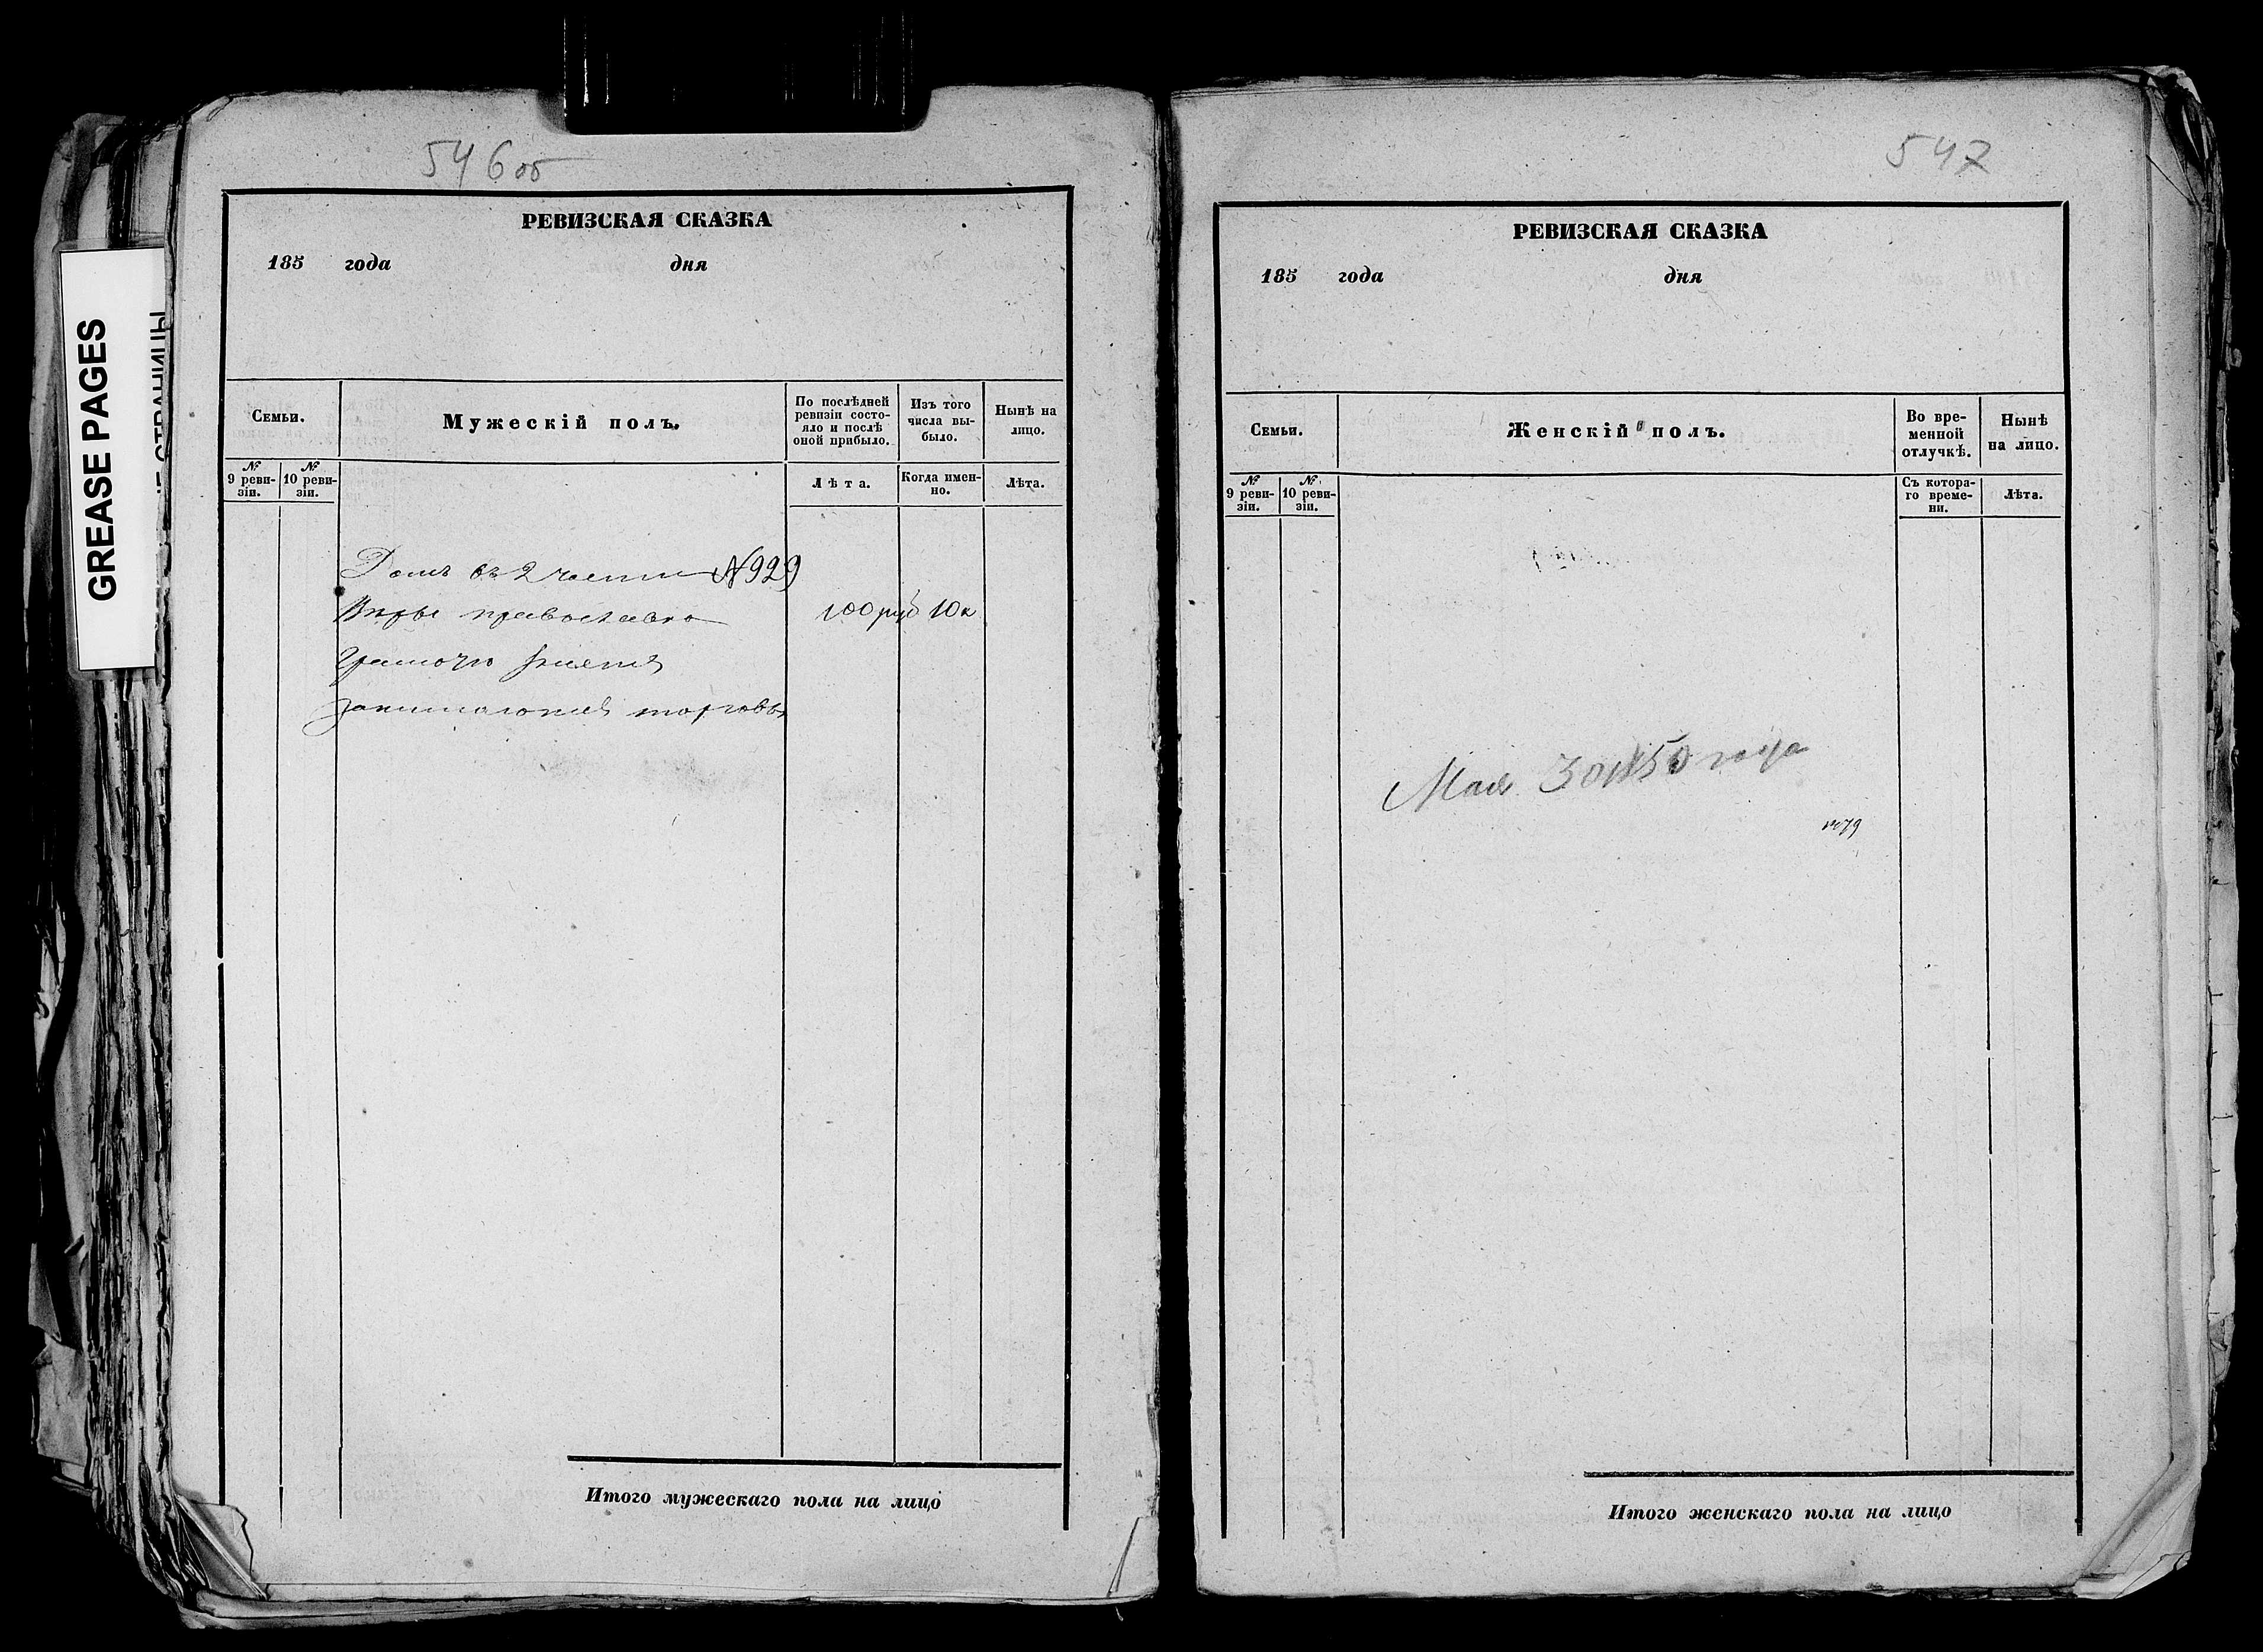 546 об
РЕВИЗСКАЯ СКАЗКА
185 года дня
Семьи.
Мужескій полъ.
По послѣдней ревизіи состояло и послѣ оной прибыло.
Изъ того числа выбыло.
Нынѣ на лицо.
№ 9 ревизіи.
№ 10 ревизіи.
Лѣта.
Когда именно.
Лѣта.
Домъ въ 2 части №929
Вѣры православно 100 руб 10 к
Грамоту знаетъ
Занимаюсь торговл
Итого мужескаго пола на лицо
GREASE PAGES
СТРАНИЦЫ
547
РЕВИЗСКАЯ СКАЗКА
185 года дня
Семьи.
Женскій полъ.
Во временной отлучкѣ.
Нынѣ на лицо.
№ 9 ревизіи.
№ 10 ревизіи.
Съ котораго времени.
Лѣта.
Мая 30 1850 года
№79
Итого женскаго пола на лицо